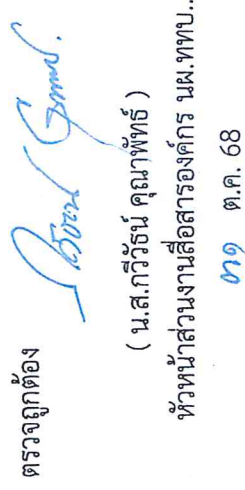 ตรวจถูกต้อง
( น.ส.กวีวัธน์ คุณาพัทธ์ )
หัวหน้าส่วนงานสื่อสารองค์กร นผ.ททบ..
๓๑ ต.ค. 68